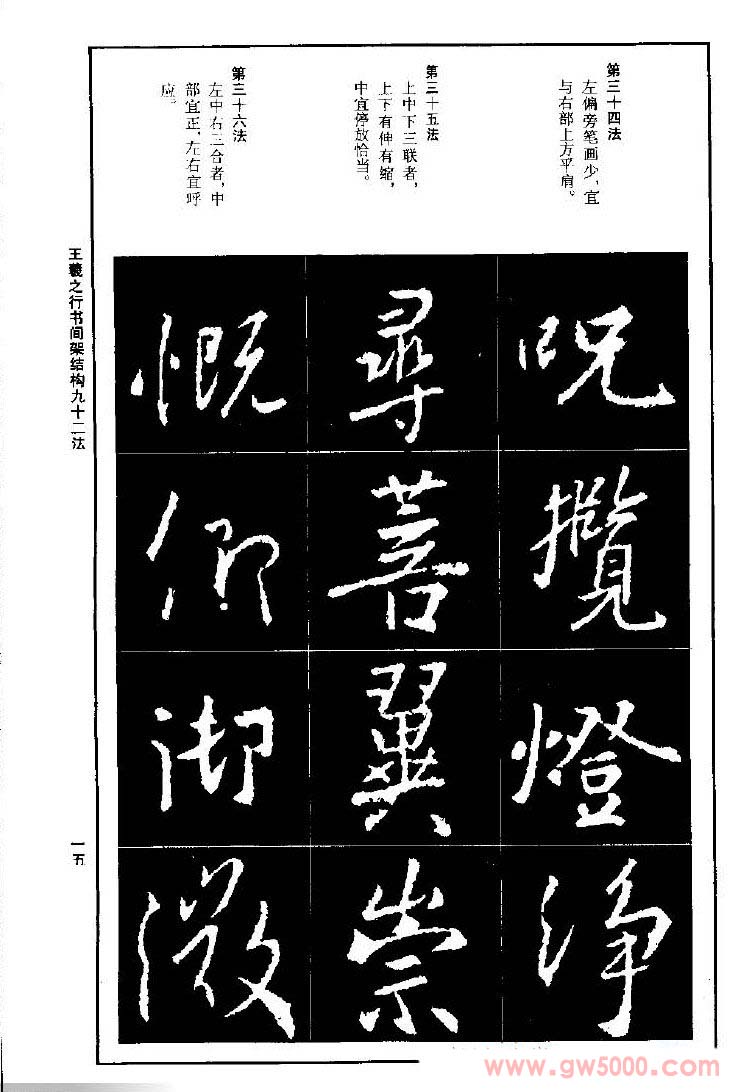 第三十四法
左偏旁笔画少，宜
与右部上方平肩。
呪
攬
燈
淨
第三十五法
上中下三联者，
上下有伸有缩，
中宜停放恰当。
尋
菩
翼
崇
第三十六法
左中右三合者，中
部宜正，左右宜呼
应。
慨
卿
御
微
王羲之行书间架结构九十二法
一五
www.gw5000.com